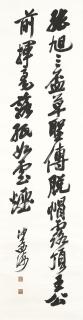 張旭三盃草聖傳脫帽露頂王公
前揮毫落紙如雲煙